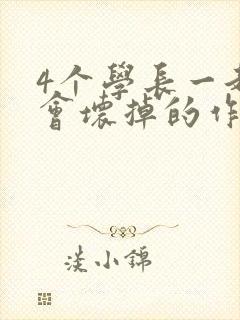 4个學長一起
會壞掉的作
淡小錦